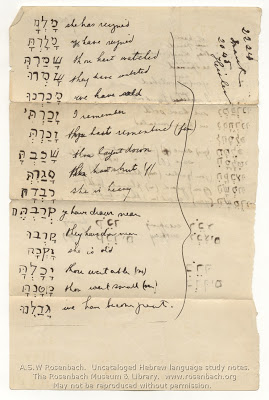 מָלְכָה she has reigned
מְלַכְתֶּם ye have reigned
שָׁמַרְתָּ thou hast watched
שָׁמְרוּ they have watched
מָכַרְנוּ we have sold
זָכַרְתִּי I remember
זָכַרְתְּ thou hast remembered (fem)
שָׁכַבְתָּ thou layest down
סָגַרְתָּ thou hast shut
כָּבְדָה she is heavy
קְרַבְתֶּם ye have drawn near
קָרְבוּ they have drawn near
זָקְנָה she is old
יָכֹלְתָּ thou wast able (m)
קָטֹנְתָּ thou wast small (m)
גָּדַלְנוּ we have become great.
2224
2045
A.S.W Rosenbach. Uncataloged Hebrew language study notes.
The Rosenbach Museum & Library, www.rosenbach.org
May not be reproduced without permission.